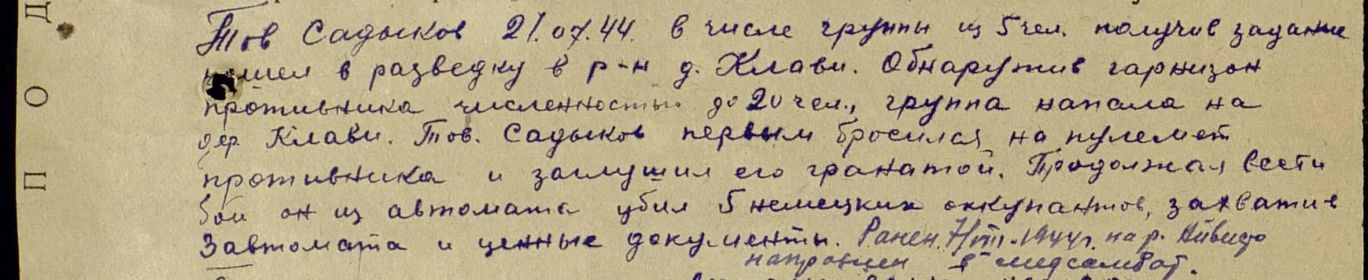 Тов Садыков 21.07.44. в числе группы из 5 чел. получив задание
пошел в разведку в р-н д. Клави. Обнаружив гарнизон
противника численностью до 20 чел., группа напала на
дер Клави. Тов. Садыков первым бросился на пулемет
противника и заглушил его гранатой. Продолжая вести
бой он из автомата убил 5 немецких оккупантов, захватив
3 автомата и ценные документы. Ранен на р.
направлен в медсамбат.
П О Д